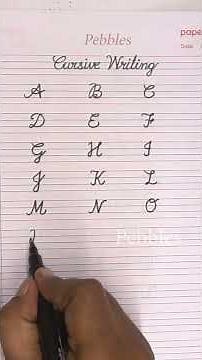 Pebbles
pape
Date
Cursive Writing
A B C
D E F
G H I
J K L
M N O
Pebbles